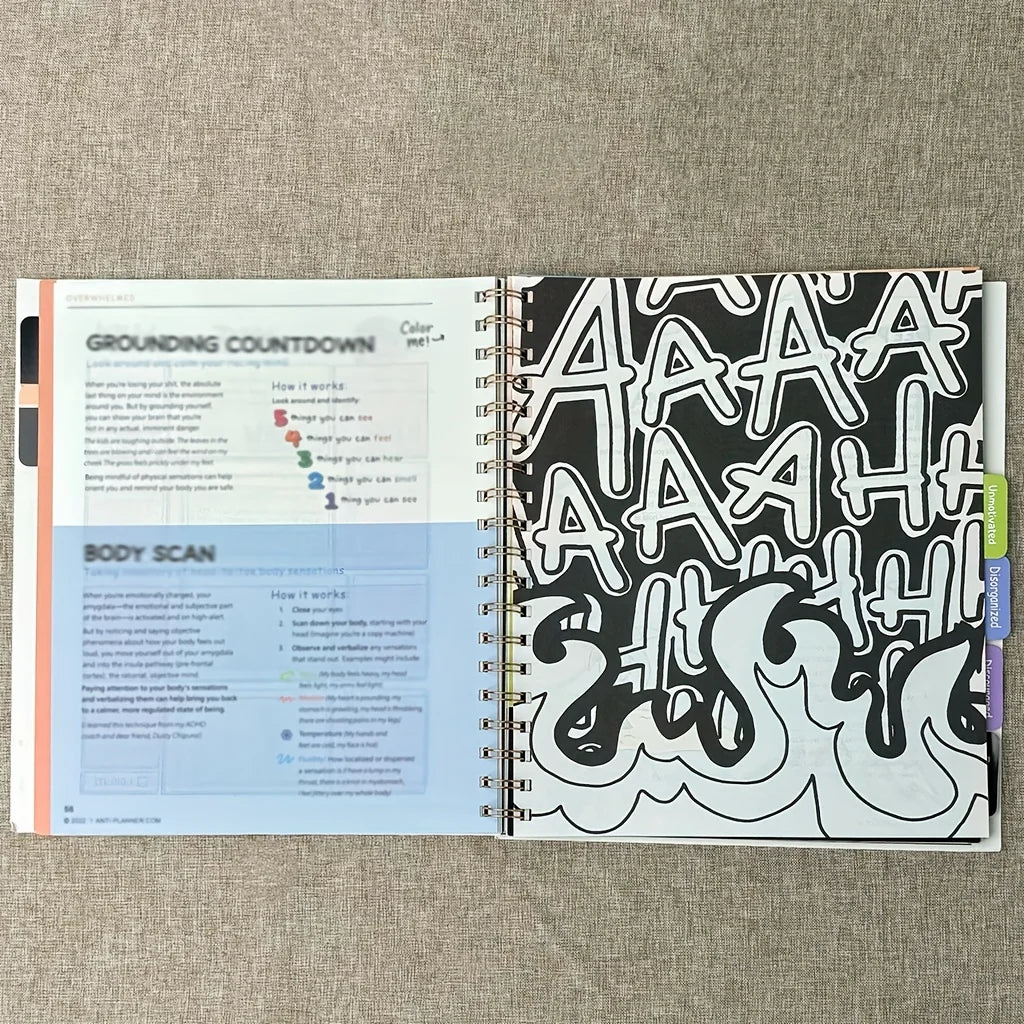 OVERWHELMED
GROUNDING COUNTDOWN
Color
me!
Look around and calm your racing mind
When you're losing your shit, the absolute
last thing on your mind is the environment
around you. But by grounding yourself,
you can show your brain that you're
not in any actual, imminent danger
The kids are laughing outside. The leaves in the
trees are blowing and I can feel the wind on my
cheek. The grass feels prickly under my feet.
Being mindful of physical sensations can help
orient you and remind your body you are safe.
How it works:
Look around and identify:
5 things you can see
4 things you can feel
3 things you can hear
2 things you can smell
1 thing you can see
BODY SCAN
Taking inventory of head-to-toe body sensations
When you're emotionally charged, your
amygdala—the emotional and subjective part
of the brain—is activated and on high-alert.
But by noticing and saying objective
phenomena about how your body feels out
loud, you move yourself out of your amygdala
and into the insula pathway (pre-frontal
cortex), the rational, objective mind.
Paying attention to your body's sensations
and verbalizing them can help bring you back
to a calmer, more regulated state of being.
(I learned this technique from my ADHD
coach and dear friend, Dusty Chipura!)
How it works:
1. Close your eyes
2. Scan down your body, starting with your
head (imagine you're a copy machine)
3. Observe and verbalize any sensations
that stand out. Examples might include
(My body feels heavy, my head
feels light, my arms feel light)
(My heart's pounding, my
stomach is growling, my head's throbbing,
there are shooting pains in my leg)
Temperature (My hands and
feet are cold, my face is hot)
How localized or dispersed
a sensation is
56
© 2022 ANTI-PLANNER.COM
AAAA
AAAAHH
HHHHH
Unmotivated
Disorganized
Discouraged